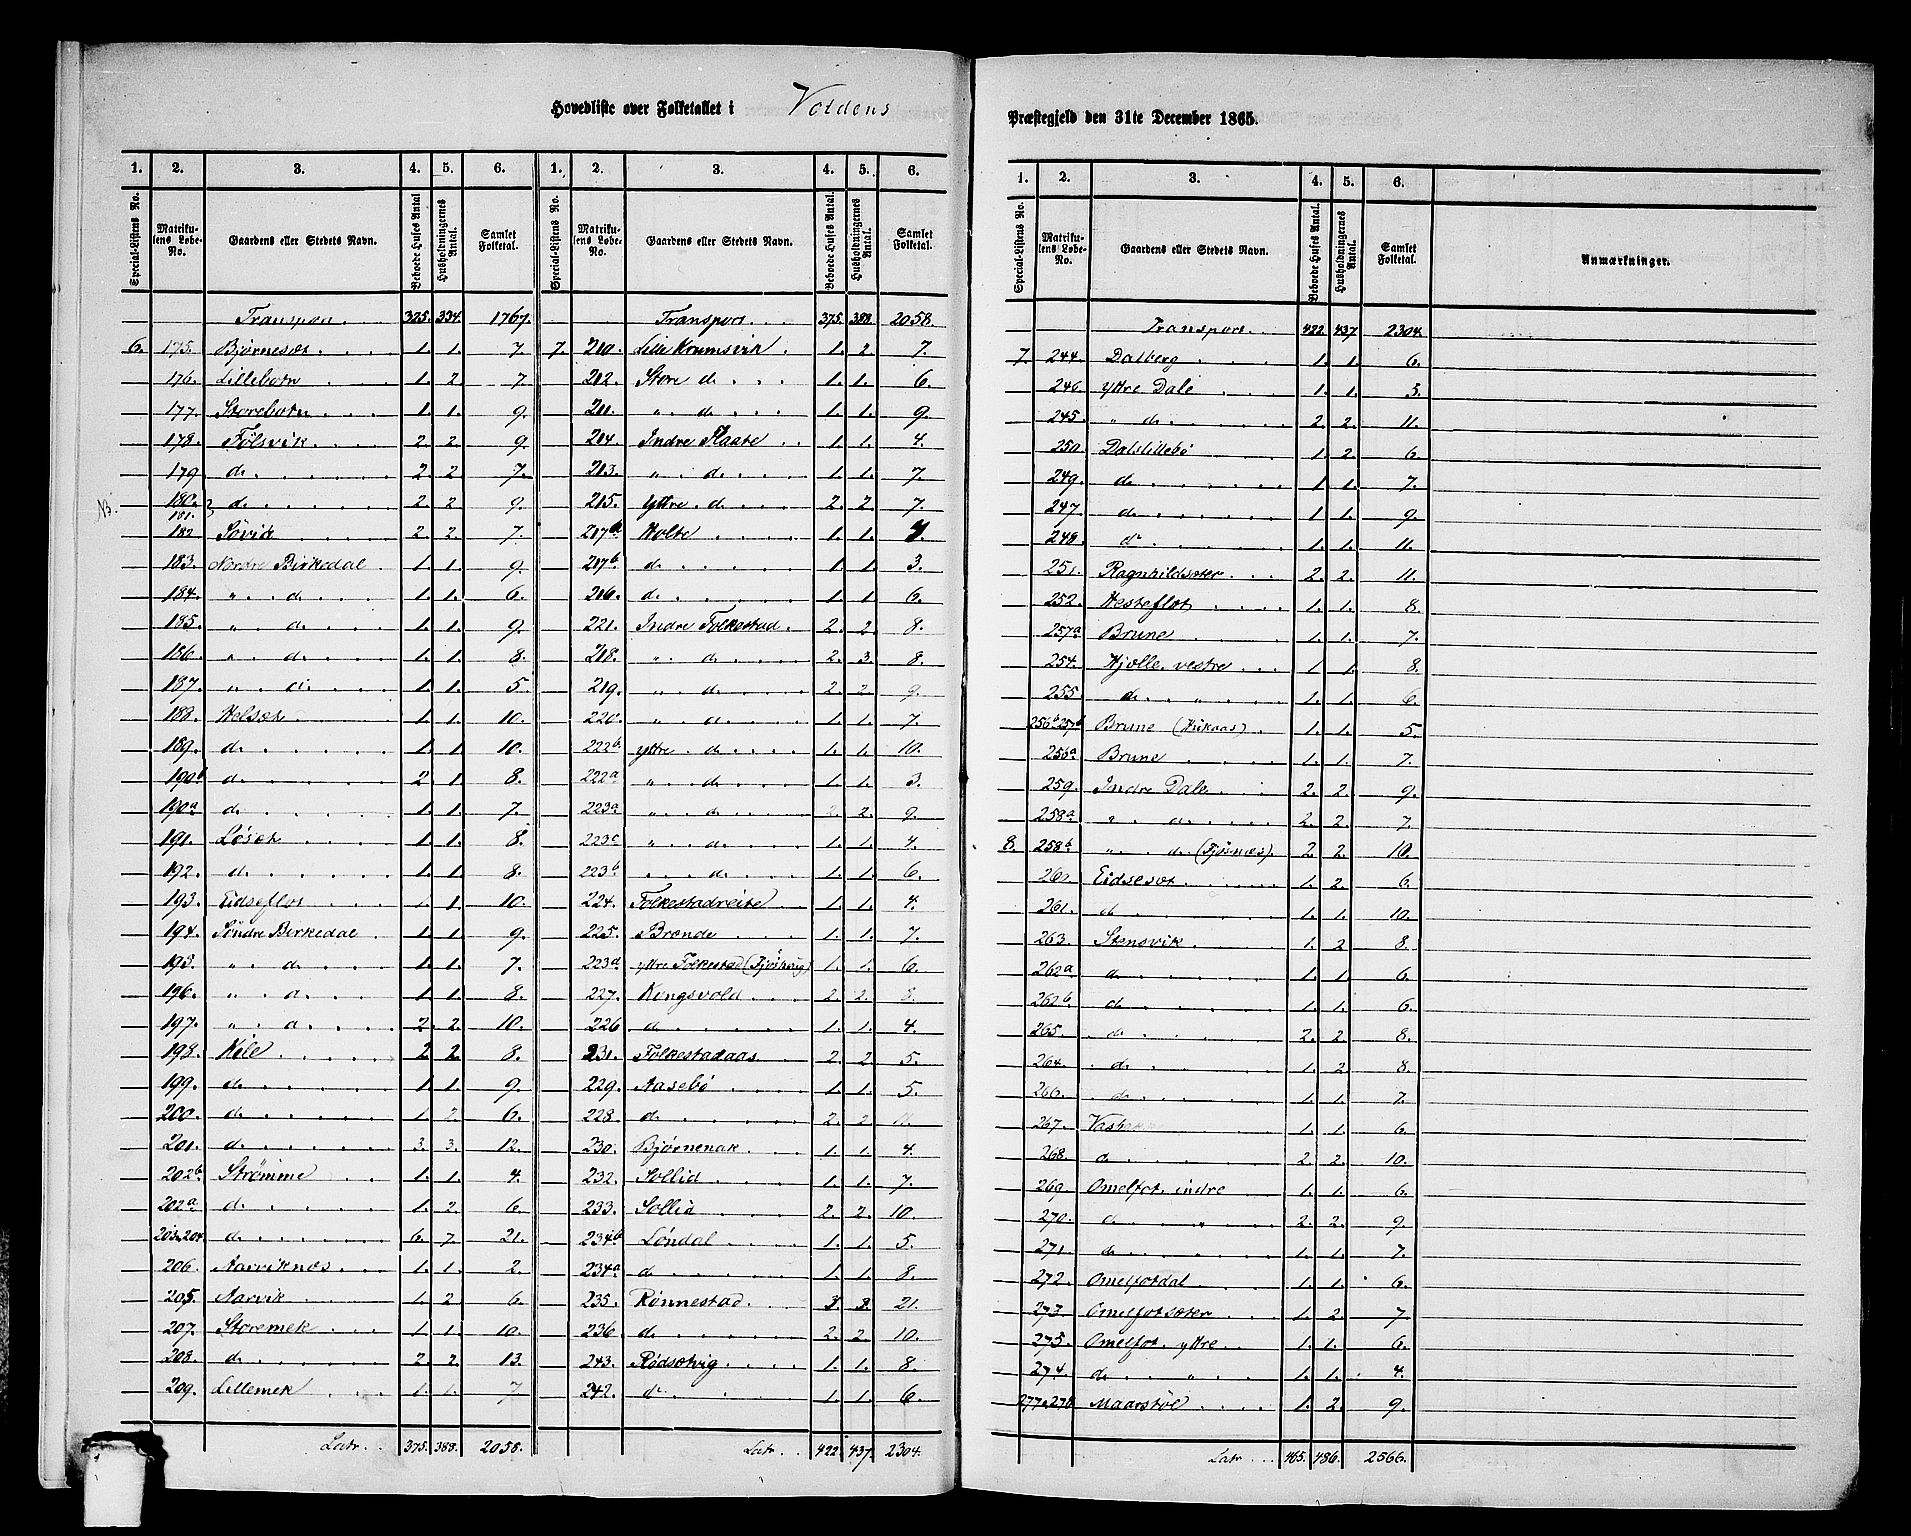 Hovedliste over Folketallet i Voldens
1. 2. 3. 4. 5. 6.
Special-Listens No. Matrikulens Løbe-No. Gaardens eller Stedets Navn. Beboede Huses Antal Husholdningernes Antal. Samlet Folketal.
Transport. 325. 334. 1767.
6. 175. Bjørneset 1. 1. 7.
176. Lillebotn 1. 2 7.
177. Storebotn 1. 1. 9.
178. Følsvik 2. 2. 9.
179 d. 2. 2 7.
N3. 180. 181. d. 2. 2 9.
182 Søvik 2. 2. 7.
183. Nordre Birkedal 1. 1. 9.
184. " d. 1. 1. 6.
185. " d. 1. 1. 9.
186. " d. 1. 1. 8.
187. " d. 1. 1. 5.
188. Helset 1. 1. 10.
189. d. 1. 1. 10.
190b d. 2. 1. 8.
190a d. 1. 1. 7.
191. Løset 1. 1. 8.
192. d. 1. 1. 8.
193. Eidseflot 1. 1 10.
194. Søndre Birkedal 1. 1. 9.
195. " d. 1. 1. 7.
196. " d. 1. 1. 8.
197. " d. 2. 2. 10.
198. Kile 2 2 8.
199. d. 1. 1. 9.
200. d. 1. 2. 6.
201. d. 3. 3. 12.
202b Strømme 1. 1. 4.
202a d. 1. 2. 6.
203.204. d. 6. 7. 21.
206. Aarviknes 1. 1. 2.
205. Aarvik 1. 2 6.
207. Storemek 1. 1. 10.
208. d. 2. 2. 13.
209. Lillemek 1. 1. 7
Latr. 375. 388. 2058.
1. 2. 3. 4. 5. 6.
Special-Listens No. Matrikulens Løbe-No. Gaardens eller Stedets Navn. Beboede Huses Antal. Husholdningernes Antal. Samlet Folketal.
Transport. 375. 388. 2058.
7. 210. Lille Krumsvik 1. 2. 7.
212. Store d. 1. 1. 6.
211. " d. 1. 1. 9.
214. Indre Flaate 1. 1. 4.
213. " d. 1. 1. 7.
215. Yttre d. 2. 2. 7.
217a Holte 1. 1.
217b d. 1. 1 3.
216. d. 1. 1. 6.
221. Indre Folkestad. 2. 2. 8.
218. " d. 2. 3. 8.
219. " d. 2. 2 9.
220. " d. 1. 1. 7.
222b. yttre d. 1. 1. 10.
222a " d. 1. 1. 3.
223a " d. 2 2. 9.
223c " d. 1. 1. 4.
223b " d. 1. 1. 6.
224. Folkestadreite 1. 1. 4.
225. Brende 1. 1. 7.
223a yttre Folkestad (Fjøshaug) 1. 1. 6.
227. Kongsvold 2. 2. 8.
226 d. 1. 1. 4.
231. Folkestadaas 2. 2 5.
229. Aasebø 1. 1. 5.
228 d. 2. 2 11.
230. Bjørnenak 1. 1. 4.
232. Sollid 1. 1. 7.
233. Sollid 2. 2. 10.
234b Løndal 1. 1. 5.
234a d. 1. 1. 8.
235. Rønnestad. 3 3. 21.
236 d. 2. 2. 10.
243. Rødsetvig 1. 1. 8.
242. d. 1. 1. 6.
Latr. 422. 437. 2304.
Præstegjeld den 31te December 1865.
1. 2. 3. 4. 5. 6.
Special-Listens No. Matrikulens Løbe-No. Gaardens eller Stedets Navn. Beboede Huses Antal. Husholdningernes Antal. Samlet Folketal. Anmærkninger.
Transport. 422. 437 2304.
7 244. Dalberg 1. 1. 6.
246. Yttre Dale 1. 1. 3.
245. " d. 2. 2. 11.
250. Dalslillebø 1. 2 6.
249. d. 1 1. 7.
247 d. 1 1. 9.
248. d. 1. 1. 11.
251. Ragnhildsæter 2. 2. 11.
252. Hesteflot 1. 1. 8.
257a Brune 1. 1. 7.
254. Hjølle, vestre 1. 1. 8.
255 d. " 1. 1. 6.
256b257b Brune (Hukaas) 1. 1. 5.
256a Brune 1. 1. 7.
259. Indre Dale. 2. 2. 9.
258a " d. 2. 2. 7.
8. 258b " d. (Fjøsnæs) 2. 2. 10.
260 Eidseset 1. 2. 6.
261. d. 1. 1. 10.
263. Stensvik 1. 2 8.
262a d. 1. 1. 6.
262b d. 1. 1. 6.
265. d. 2. 2 8.
264. d. 1. 2 8.
266. d. 1. 1. 7.
267. 1. 1. 6.
268. d. 2. 2. 10.
269. Omelfot, indre 1. 1. 6.
270. d. " 2. 2. 9.
271. d. " 1. 1. 7.
272. Omelfotdal 1. 1. 6.
273. Omelfotsæter 1. 2. 7
275. Omelfot, yttre 1. 1. 6.
274. d. " 1. 1. 4.
277.276 Maarstøl 1. 2. 9.
Latr. 465. 486. 2566.